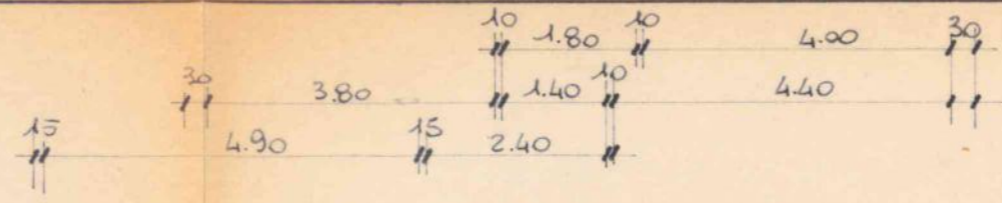 10 1.80 10 4.00 30
30 3.80 1.40 10 4.40
15 4.90 15 2.40